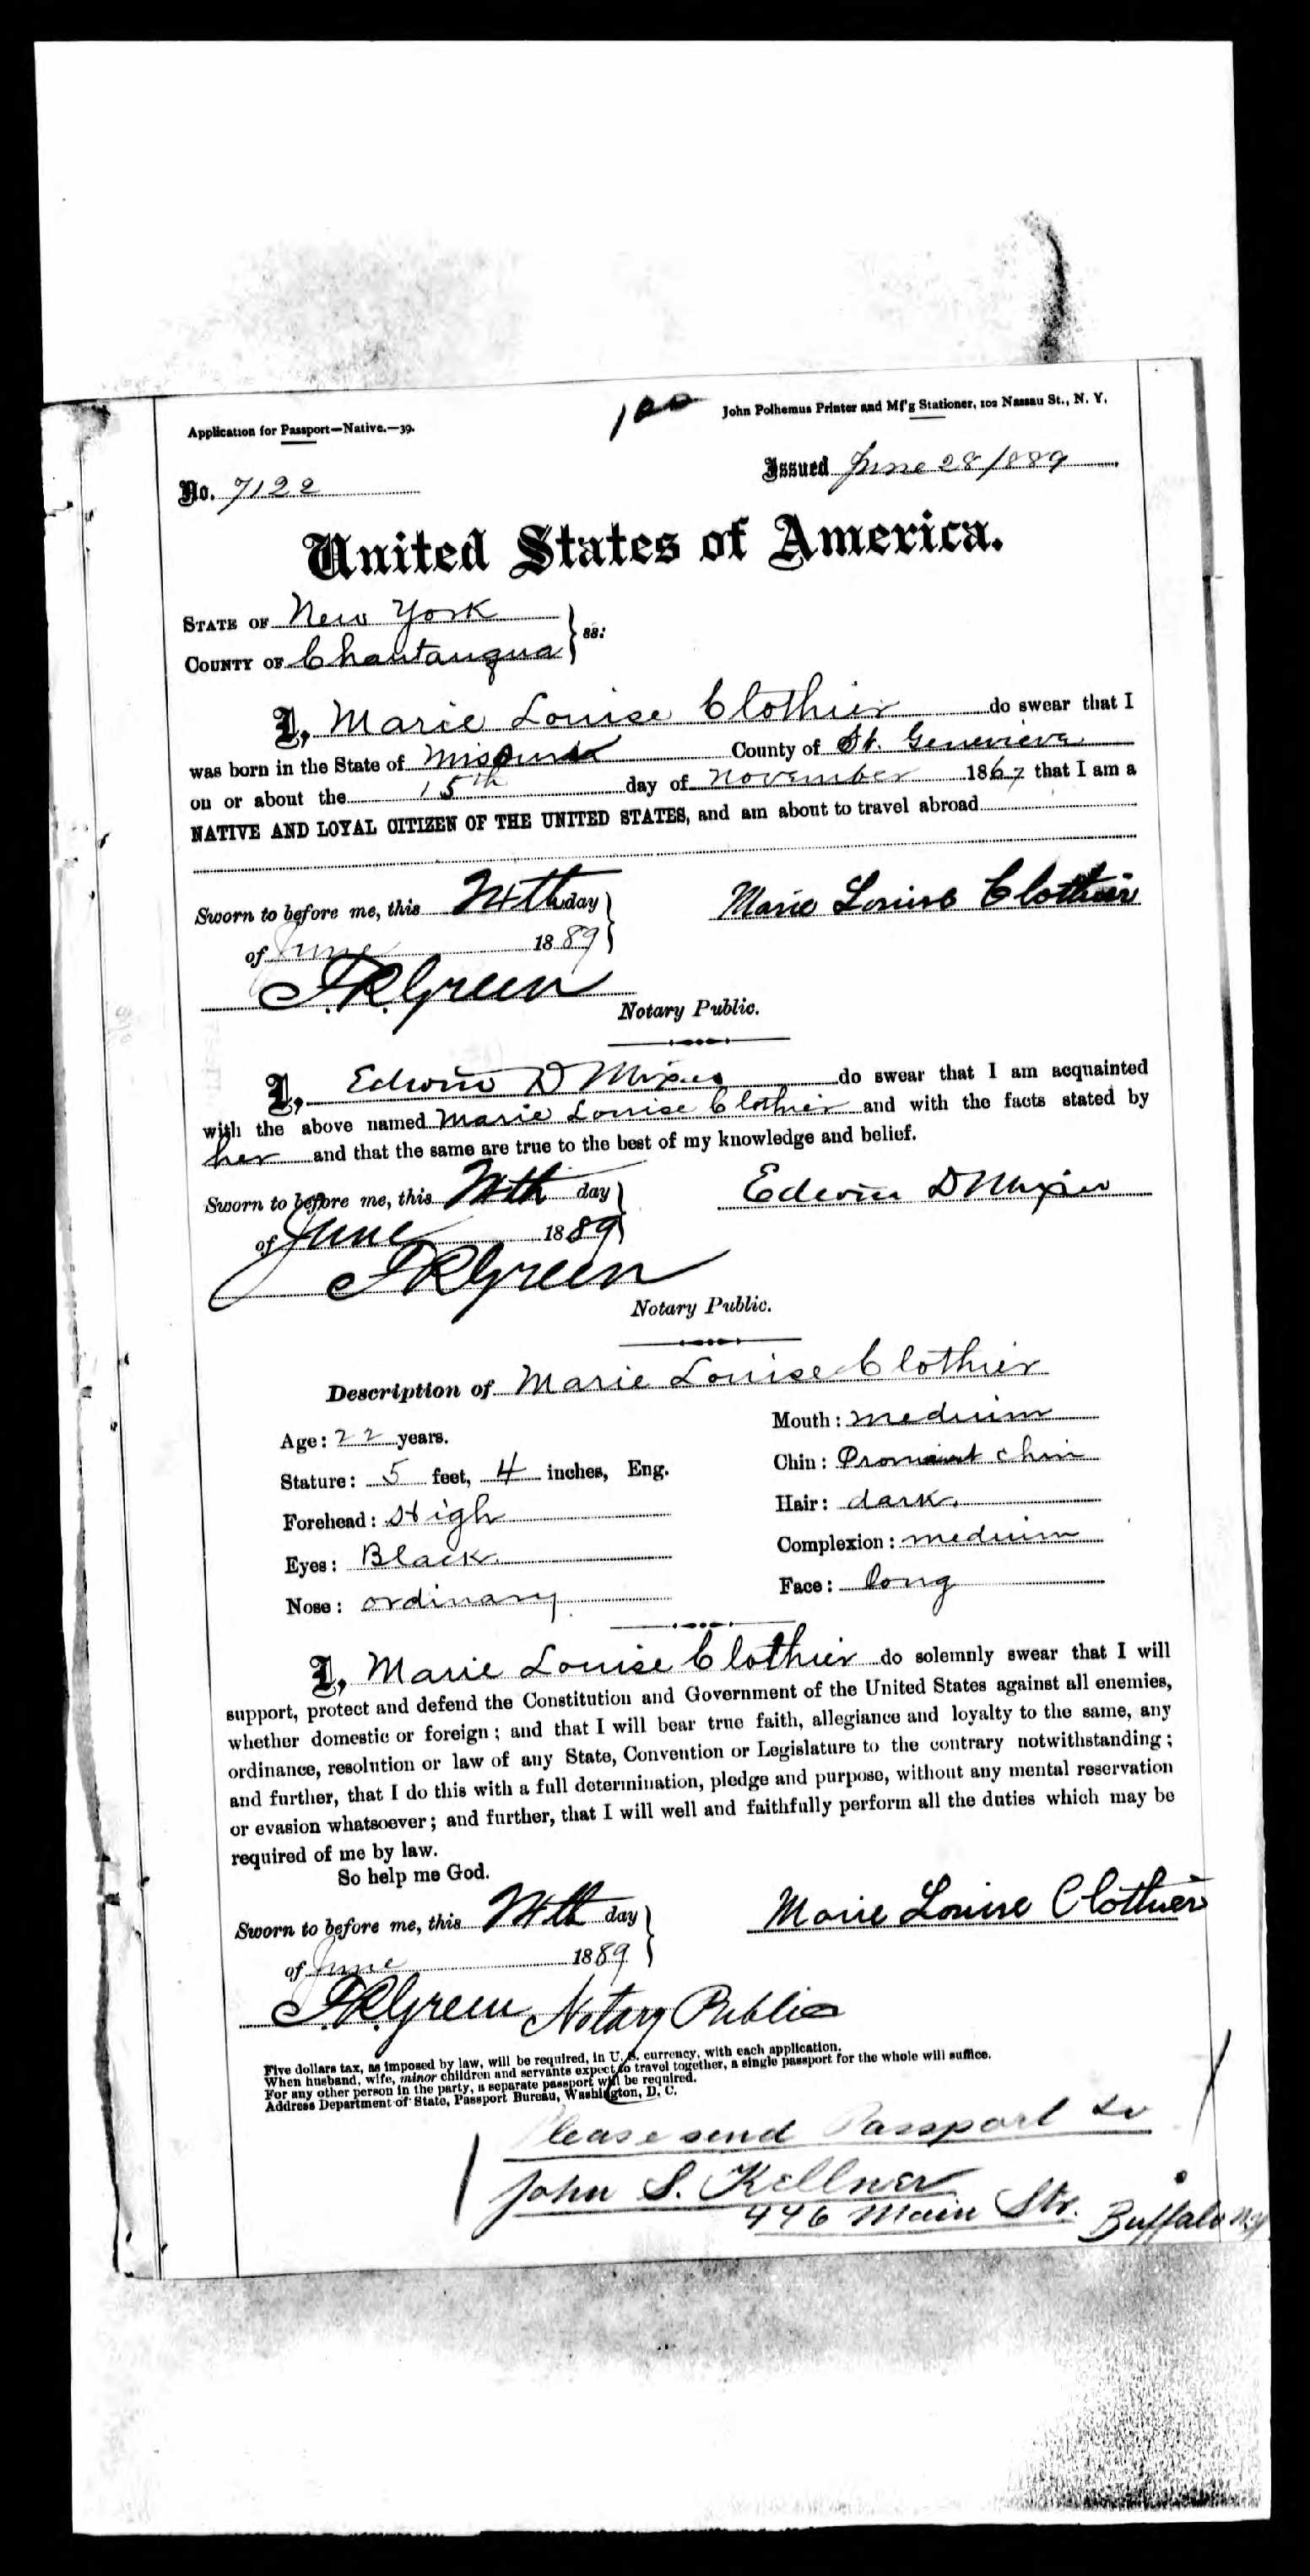 Application for Passport—Native.—39.
100
John Polhemus Printer and M'f'g Stationer, 102 Nassau St., N. Y.
No. 7122
Issued June 28/1889
United States of America.
STATE OF New York
COUNTY OF Chautauqua } ss:
I, Marie Louise Clothier do swear that I
was born in the State of Missouri County of St. Genevieve
on or about the 15th day of November 1867 that I am a
NATIVE AND LOYAL CITIZEN OF THE UNITED STATES, and am about to travel abroad
Sworn to before me, this 24th day
of June 1889 }
Marie Louise Clothier
F.R. Green
Notary Public.
I, Edwin D Mixer do swear that I am acquainted
with the above named Marie Louise Clothier and with the facts stated by
her and that the same are true to the best of my knowledge and belief.
Sworn to before me, this 24th day
of June 1889 }
Edwin D Mixer
F R Green
Notary Public.
Description of Marie Louise Clothier
Age: 22 years.
Stature: 5 feet, 4 inches, Eng.
Forehead: High
Eyes: Black
Nose: ordinary
Mouth: medium
Chin: Prominent chin
Hair: dark.
Complexion: medium
Face: long
I, Marie Louise Clothier do solemnly swear that I will
support, protect and defend the Constitution and Government of the United States against all enemies,
whether domestic or foreign; and that I will bear true faith, allegiance and loyalty to the same, any
ordinance, resolution or law of any State, Convention or Legislature to the contrary notwithstanding;
and further, that I do this with a full determination, pledge and purpose, without any mental reservation
or evasion whatsoever; and further, that I will well and faithfully perform all the duties which may be
required of me by law.
So help me God.
Sworn to before me, this 24th day
of June 1889 }
Marie Louise Clothier
F.R. Green Notary Public
Five dollars tax, as imposed by law, will be required, in U. S. currency, with each application.
When husband, wife, minor children and servants expect to travel together, a single passport for the whole will suffice.
For any other person in the party, a separate passport will be required.
Address Department of State, Passport Bureau, Washington, D. C.
Please send Passport to
John S. Kellner
446 Main Str. Buffalo N.Y